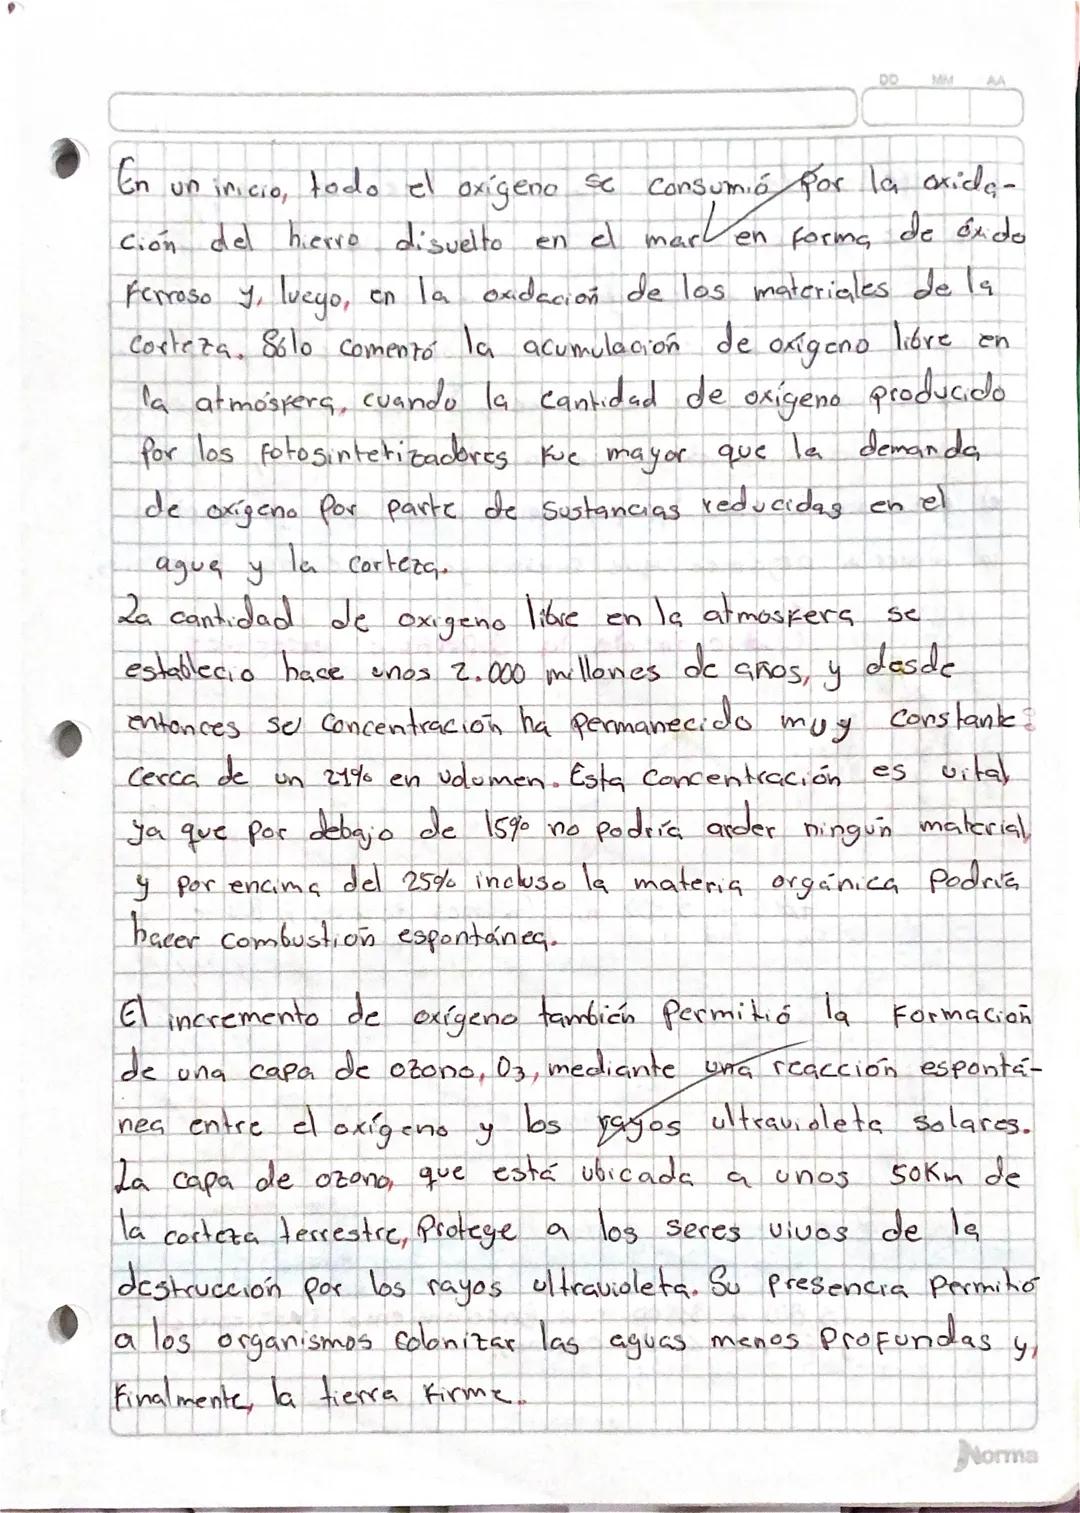 DD MM AA
En un inicio, todo el oxígeno se consumió por la oxida-
ción del hierro disuelto en el mar en forma de óxido
ferroso y, luego, en la oxidación de los materiales de la
corteza. Sólo comenzó la acumulación de oxígeno libre en
la atmósfera, cuando la cantidad de oxígeno producido
por los fotosintetizadores fue mayor que la demanda
de oxígeno por parte de sustancias reducidas en el
agua y la corteza.
La cantidad de oxigeno libre en la atmosfera se
establecio hace unos 2.000 millones de años, y desde
entonces su concentración ha permanecido muy constante:
cerca de un 21% en volumen. Esta concentración es vital,
ya que por debajo de 15% no podría arder ningún material,
y por encima del 25% incluso la materia orgánica podría
hacer combustión espontánea.
El incremento de oxígeno también permitió la formación
de una capa de ozono, O3, mediante una reacción espontá-
nea entre el oxígeno y los rayos ultravioleta solares.
La capa de ozono, que está ubicada a unos 50Km de
la corteza terrestre, protege a los seres vivos de la
destrucción por los rayos ultravioleta. Su presencia permitió
a los organismos colonizar las aguas menos profundas y,
finalmente, la tierra firme.
Norma